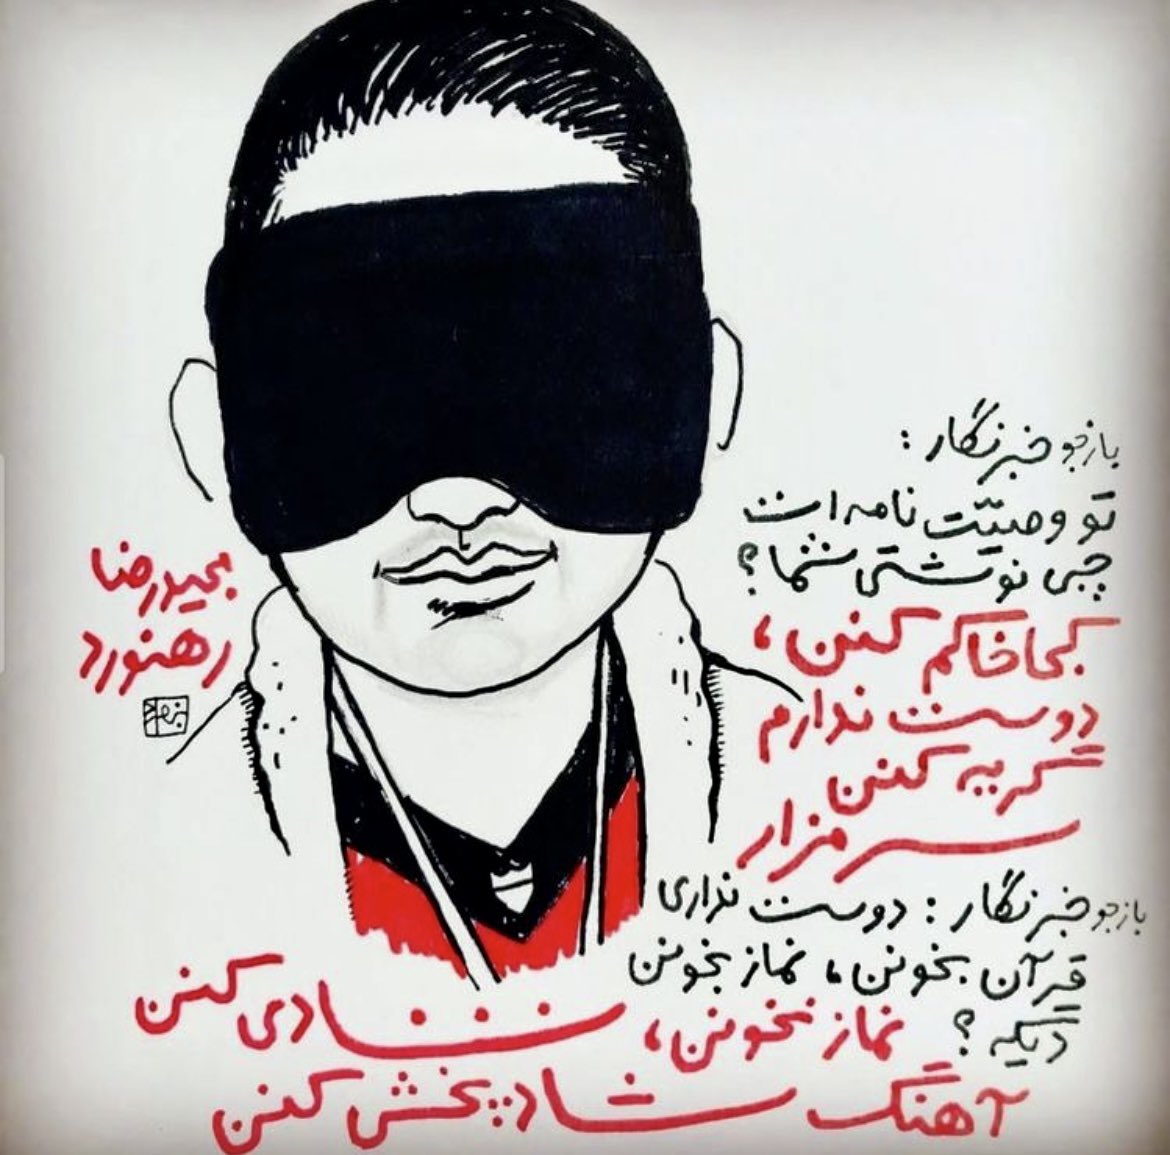 بازجو خبرنگار :
تو وصیّت نامه ات
چی نوشتی شما؟
کجا خاکم کنن،
دوست ندارم
گریه کنن
سر مزار
بازجو خبرنگار : دوست نداری
قرآن بخونن، نماز بخونن
دیگه؟ نماز نخونن، شادی کنن
آهنگ شاد پخش کنن
مجیدرضا
رهنورد